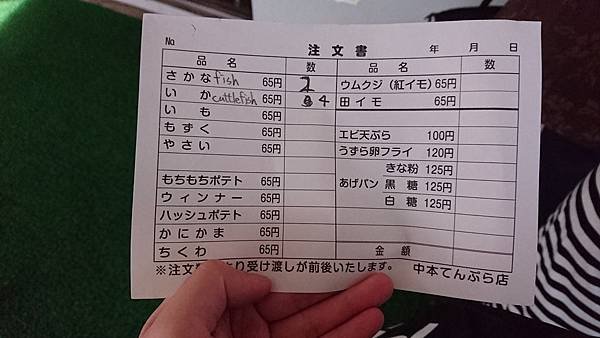 No. 注文書 年 月 日
品名 数 品名 数
さかな fish 65円 2 ウムクジ（紅イモ）65円
いか cuttlefish 65円 4 田イモ 65円
いも 65円
もずく 65円 エビ天ぷら 100円
やさい 65円 うずら卵フライ 120円
きな粉 125円
もちもちポテト 65円 あげパン 黒糖 125円
ウィンナー 65円 白糖 125円
ハッシュポテト 65円
かにかま 65円
ちくわ 65円 金額
※注文 り受け渡しが前後いたします。 中本てんぷら店